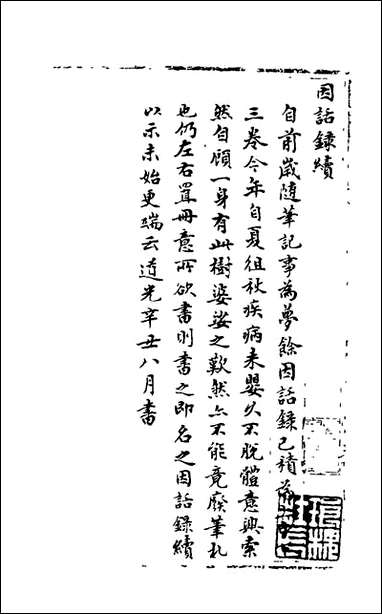 因話錄續
自前歲隨筆記事為夢餘因話錄已積
三卷今年自夏徂秋疾病未嬰久不脫體意興索
然自顧一身有此樹婆娑之歎然亦不能竟廢筆札
也仍左右置冊意所欲書則書之即名之因話錄續
以示未始更端云道光辛丑八月書